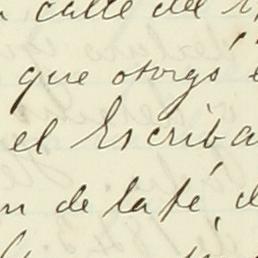 calle del
que otorgó
el Escriba
n de la fé, d